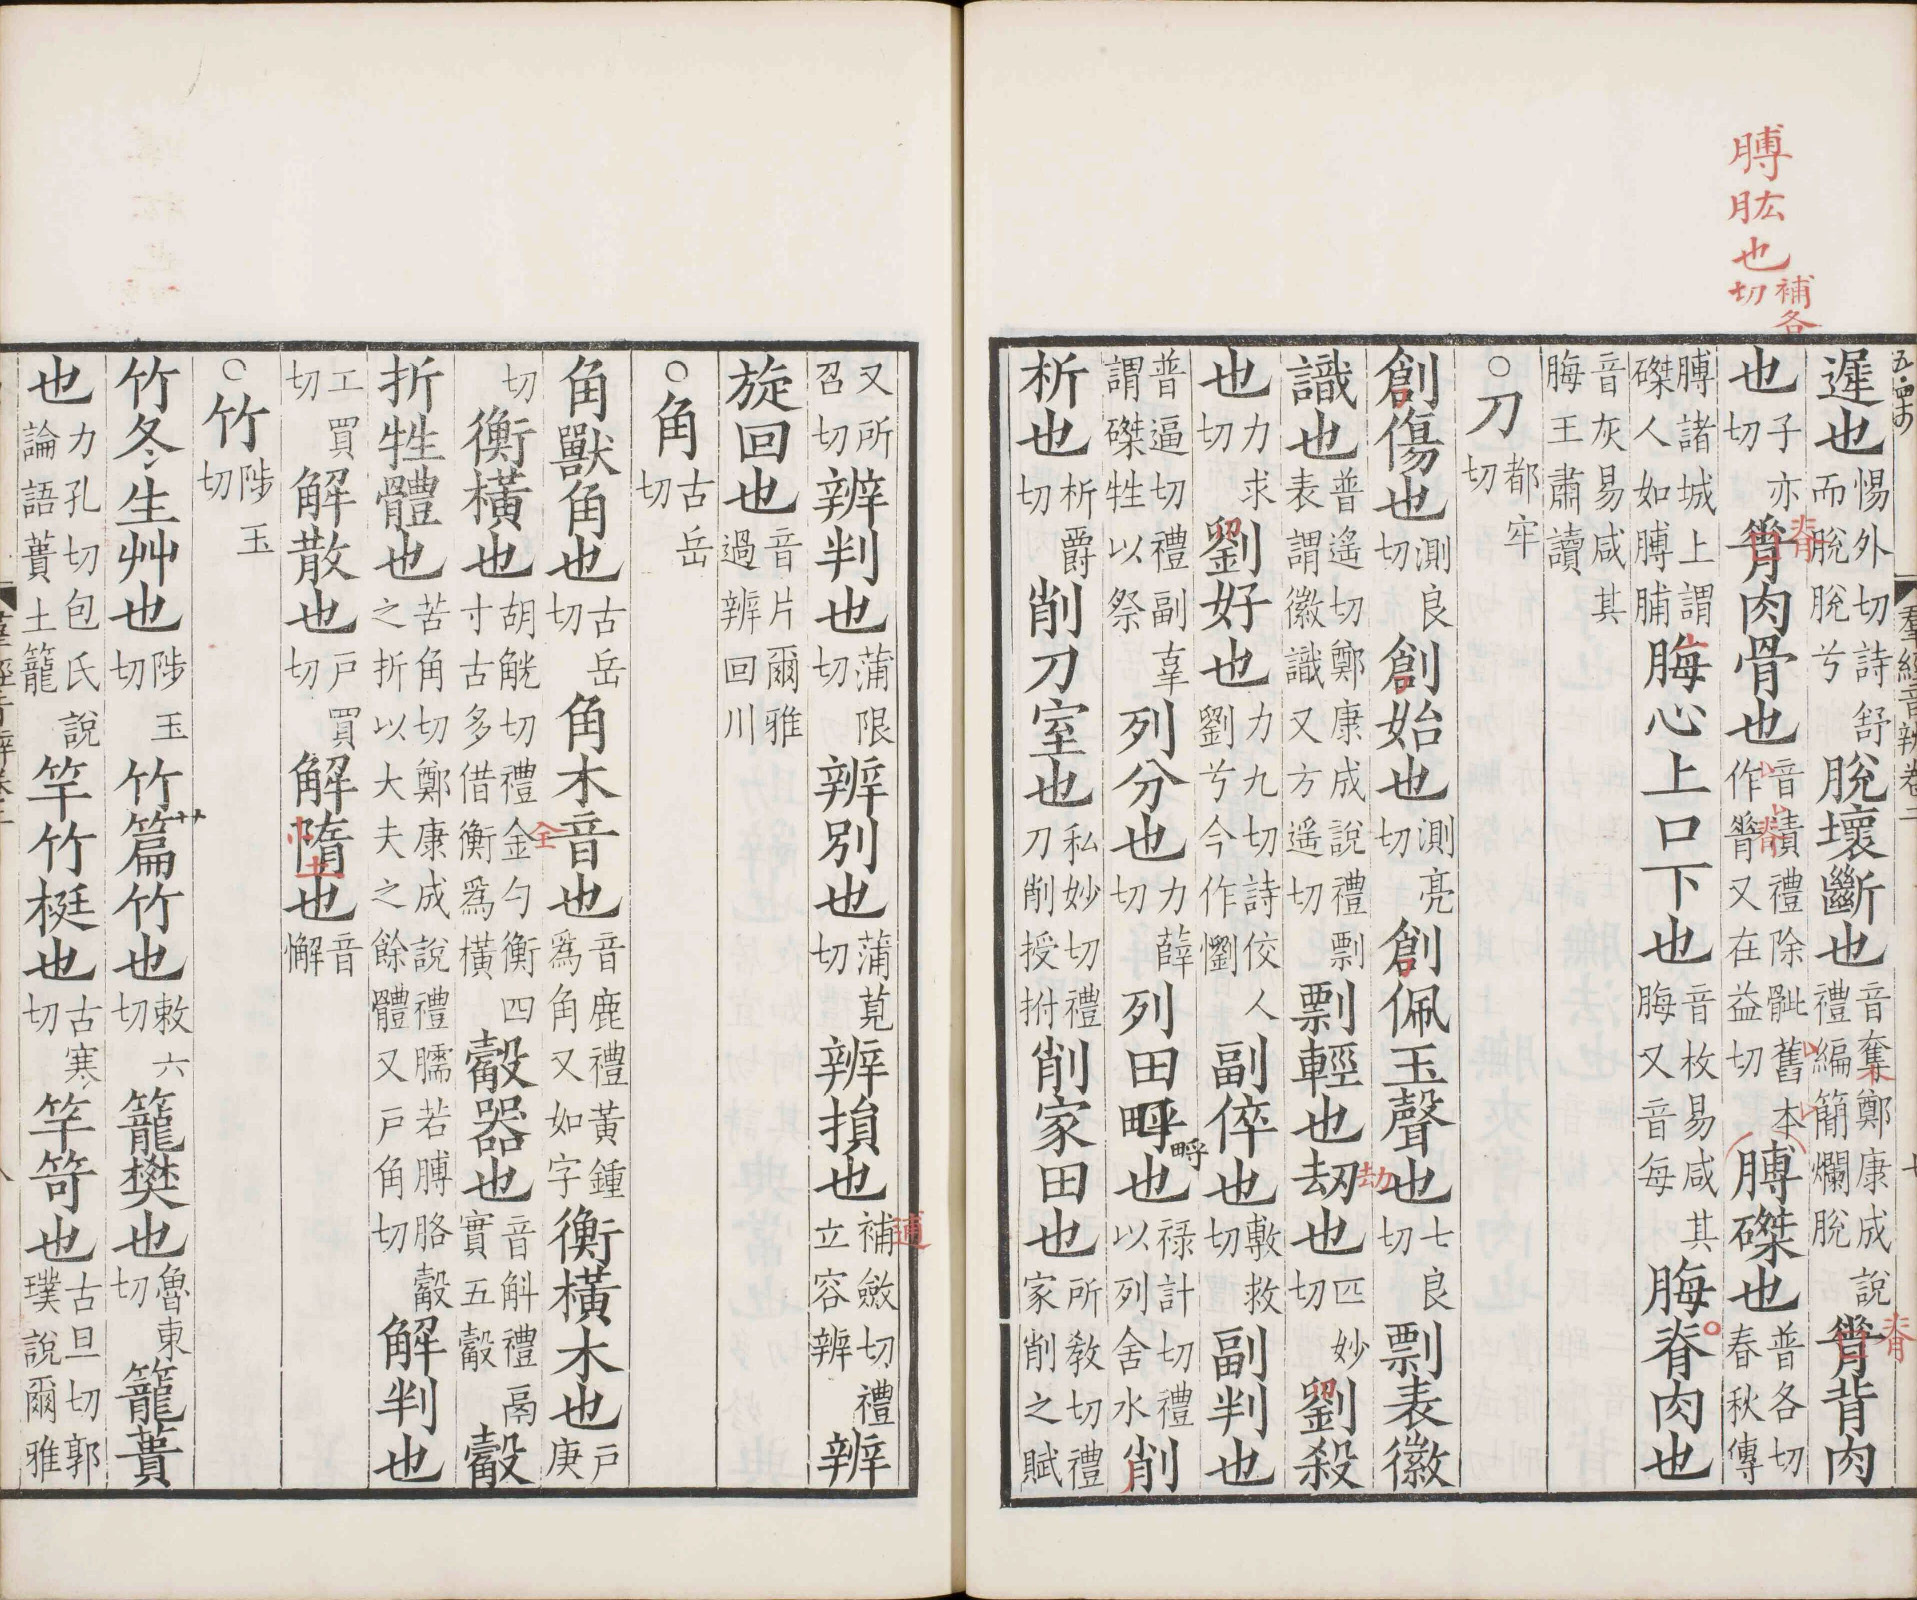 膊肱也補各切
羣經音辨卷二
遲也惕外切詩舒而脫脫兮脫壞斷也音奪鄭康成說禮編簡爛脫膌背肉
也子亦切膌肉骨也音漬禮除骴舊本作膌又在益切膊磔也普各切春秋傳
膊諸城上謂磔人如膊脯脢心上口下也音枚易咸其脢又音每脢脊肉也
音灰易咸其脢王肅讀
○刀都牢切
創傷也測良切創始也測亮切創佩玉聲也七良切剽表徽
識也普遙切鄭康成說禮剽表謂徽識又方遙切剽輕也劫也匹妙切劉殺
也力求切劉好也力九切詩佼人劉兮今作懰副倅也敷救切副判也
普逼切禮副辜謂磔牲以祭列分也力薛切列田畔也祿計切禮以列舍水削
析也析爵切削刀室也私妙切禮刀削授拊削家田也所教切禮家削之賦
又所召切辨判也蒲限切辨別也蒲莧切辨損也補斂切禮立容辨辨
旋回也音片爾雅過辨回川
○角古岳切
角獸角也古岳切角木音也音鹿禮黃鍾爲角又如字衡橫木也戶庚
切衡橫也胡觥切禮金勺衡四寸古多借衡爲橫觳器也音斛禮鬲實五觳觳
折牲體也苦角切鄭康成說禮臑若膊胳觳之折以大夫之餘體又戶角切解判也
工買切解散也戶買切解墮也音懈
○竹陟玉切
竹冬生艸也陟玉切竹篇竹也敕六切籠樊也魯東切籠蕢
也力孔切包氏說論語蕢土籠竿竹梃也古寒切竿笴也古旦切郭璞說爾雅